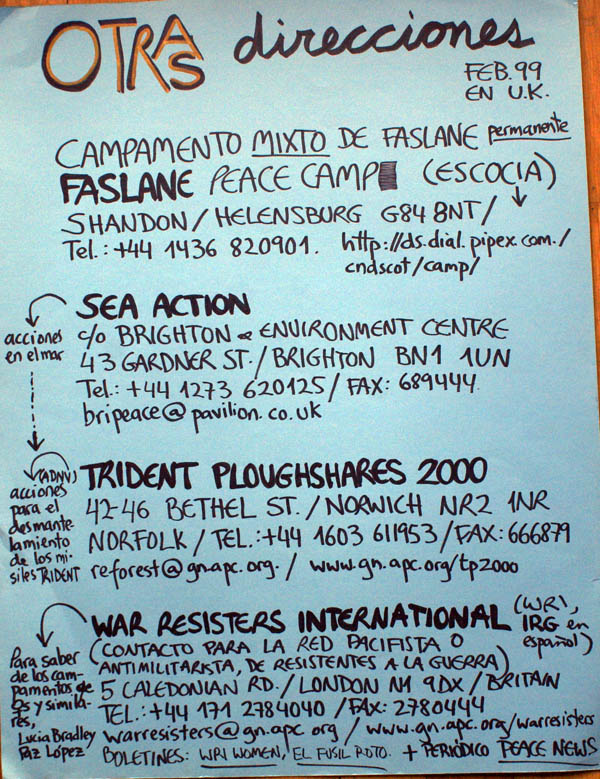 OTRAS direcciones
FEB. 99
EN U.K.
CAMPAMENTO MIXTO DE FASLANE permanente
FASLANE PEACE CAMP (ESCOCIA)
SHANDON / HELENSBURG G84 8NT /
Tel.: +44 1436 820901. http://ds.dial.pipex.com./
cndscot/camp/
SEA ACTION
acciones
en el mar
c/o BRIGHTON & ENVIRONMENT CENTRE
43 GARDNER ST. / BRIGHTON BN1 1UN
Tel.: +44 1273 620125 / FAX: 689444
bripeace@pavilion.co.uk
(ADNV)
acciones
para el
desmante-
lamiento
de los mi-
siles TRIDENT
TRIDENT PLOUGHSHARES 2000
42-46 BETHEL ST. / NORWICH NR2 1NR
NORFOLK / TEL.: +44 1603 611953 / FAX: 666879
reforest@gn.apc.org. / www.gn.apc.org/tp2000
WAR RESISTERS INTERNATIONAL (WRI,
IRG en
español)
(CONTACTO PARA LA RED PACIFISTA O
ANTIMILITARISTA, DE RESISTENTES A LA GUERRA)
5 CALEDONIAN RD. / LONDON N1 9DX / BRITAIN
TEL.: +44 171 2784040 / FAX: 2780444
warresisters@gn.apc.org / www.gn.apc.org/warresisters
BOLETINES: WRI WOMEN, EL FUSIL ROTO. + PERIÓDICO PEACE NEWS
Para saber
de los cam-
pamentos de
Qs y simila-
res,
Lucia Bradley
Paz López